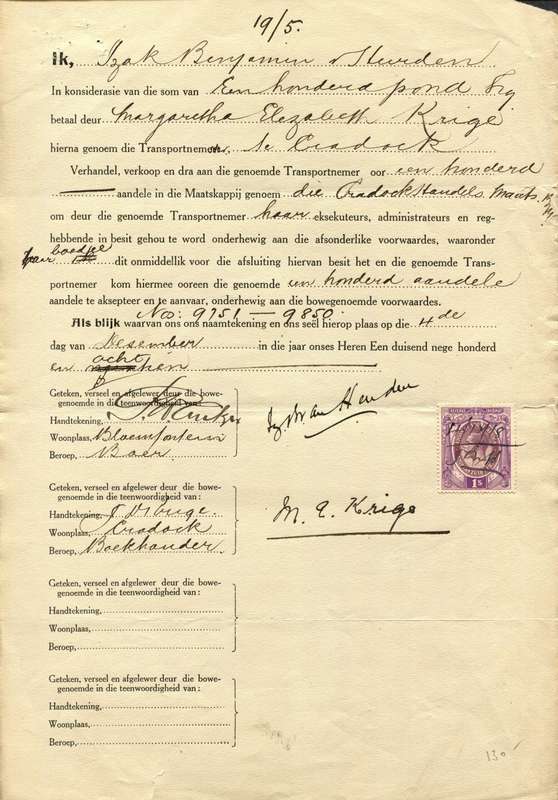 19/5.
Ik, Izak Benjamin v Heerden
In konsiderasie van die som van Een honderd pond Stg
betaal deur Margaretha Elezabeth Krige
hierna genoem die Transportnemer, te Cradock
Verhandel, verkoop en dra aan die genoemde Transportnemer oor een honderd
aandele in die Maatskappij genoem die Cradock Handels Maats.
om deur die genoemde Transportnemer haar eksekuteurs, administrateurs en reg-
hebbende in besit gehou te word onderhewig aan die afsonderlike voorwaardes, waaronder
boedel
dit onmiddellik voor die afsluiting hiervan besit het en die genoemde Trans-
portnemer kom hiermee ooreen die genoemde een honderd aandele
aandele te aksepteer en te aanvaar, onderhewig aan die bowegenoemde voorwaardes.
Nos: 9751 — 9850
Als blijk waarvan ons ons naamtekening en ons seël hierop plaas op die 4de
dag van Desember in die jaar onses Heren Een duisend nege honderd
acht
en tien
Geteken, verseel en afgelewer deur die bowe-
genoemde in die teenwoordigheid van:
Handtekening,
Woonplaas, Bloemfontein
Beroep, Boer
Iz. B. van Heerden
1S
Geteken, verseel en afgelewer deur die bowe-
genoemde in die teenwoordigheid van:
Handtekening,
Woonplaas, Cradock
Beroep, Boekhouder
M. E. Krige
Geteken, verseel en afgelewer deur die bowe-
genoemde in die teenwoordigheid van:
Handtekening,
Woonplaas,
Beroep,
Geteken, verseel en afgelewer deur die bowe-
genoemde in die teenwoordigheid van:
Handtekening,
Woonplaas,
Beroep,
130